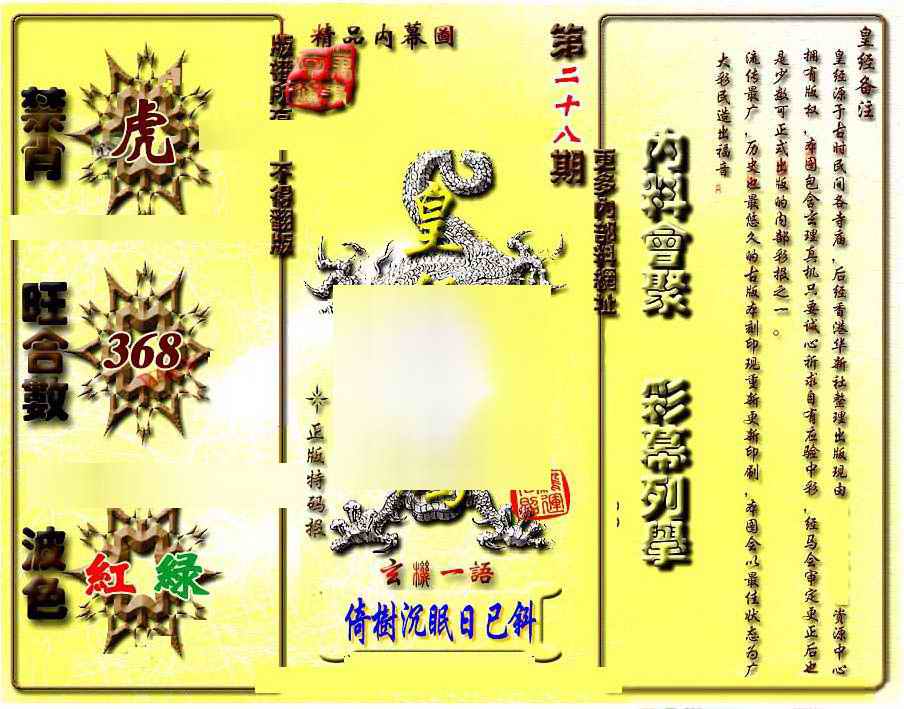 皇经备注
皇经源于古时民间各寺庙，后经香港华新社整理出版现由
资源中心
拥有版权，本图包含玄理真机只要诚心祈求自有应验中彩，经马会审定更正后也
是少数可正式出版的内部彩报之一。
流传最广，历史也最悠久的古版本刻印现重新更新印刷，本图会以最佳状态为广
大彩民造出福音
内料會聚
彩幕列舉
更多內部料網址
第二十八期
精品内幕圖
版權所有
不得翻版
皇
正版特码报
玄機一語
倚樹沉眠日已斜
禁肖
虎
旺合數
368
波色
紅 綠